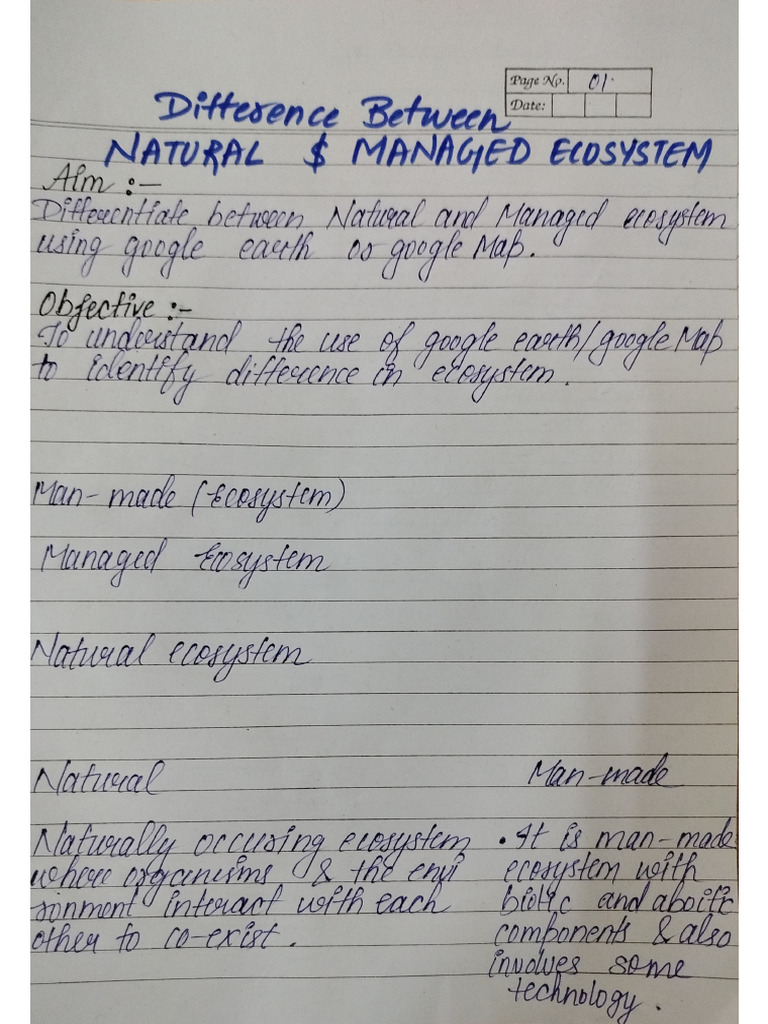 Page No. 01.
Date:
Difference Between
NATURAL $ MANAGED ECOSYSTEM
Aim :-
Differentiate between Natural and Managed ecosystem
using google earth or google Map.
Objective :-
To understand the use of google earth/google Map
to identify difference in ecosystem.
Man-made (Ecosystem)
Managed Ecosystem
Natural ecosystem
Natural
Man-made
Naturally occuring ecosystem
where organisms & the envi
ronment interact with each
other to co-exist.
• It is man-made
ecosystem with
biotic and aboitc
components & also
involves some
technology.